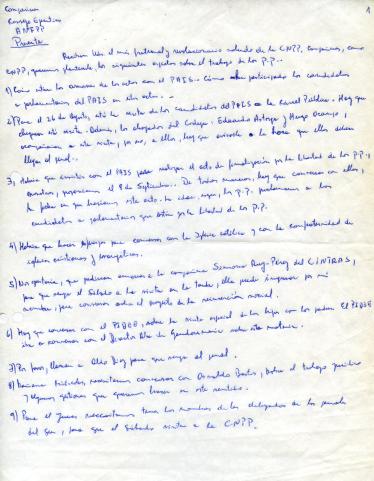 Compañeros
Consejo Ejecutivo
ANFPP
Presente
Reciban Uds el más fraternal y revolucionario saludo de la CNPP, compañeros, como
CNPP, queremos plantearles, los siguientes aspectos sobre el trabajo de los P.P..
1) Como están los comienzos de los actos con el PAIS. Cómo han participado los candidatos
a parlamentarios del PAIS en estos actos. -
2) Para el 26 de Agosto, está la visita de los candidatos del PAIS a la Cárcel Pública. Hay que
chequear esta visita. Además, los abogados del Codepu. Eduardo Astorga y Hugo Ocampo,
acompañarán a esta visita, por eso, a ellos, hay que avisarle a la hora que ellos deben
llegar al penal. -
3) Habría que discutir con el PAIS para realizar el acto de finalización por la libertad de los P.P.,
nosotros, proponemos el 9 de Septiembre. De todas maneras, hay que conversar con ellos,
la fecha en que haríamos este acto. La idea, es que, los P.P. proclamamos a los
candidatos a parlamentarios que están por la libertad de los P.P.
4) Habría que hacer esfuerzos para conversar con la Iglesia católica y con la confraternidad de
iglesias cristianas y evangélicas.
5) Nos gustaría, que pudieran comunicarse a la compañera Ruiz-Pérez del CINTRAS,
para que venga el Sábado a la visita en la tarde, ella puede ingresar por mi
nombre, para conversar sobre el proyecto de la recreación.
6) Hay que conversar con el PIDEE, sobre la visita especial de los hijos con los padres. El PIDEE
iba a conversar con el Director de Gendarmería sobre esta materia.
7) Por favor, llamen a Aldo Díaz para que venga al penal.
8) Necesitamos conversar con Osvaldo, sobre el trabajo jurídico
y algunas gestiones que queremos hacer en este sentido.
9) Para el Jueves necesitamos tener los nombres de los delegados de los penales
del sur, para que el Sábado visiten a la CNPP.